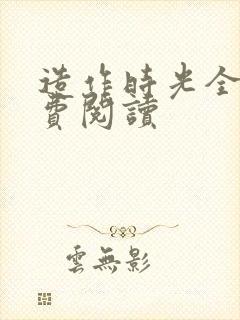 造作時光全
費閱讀
雲無影